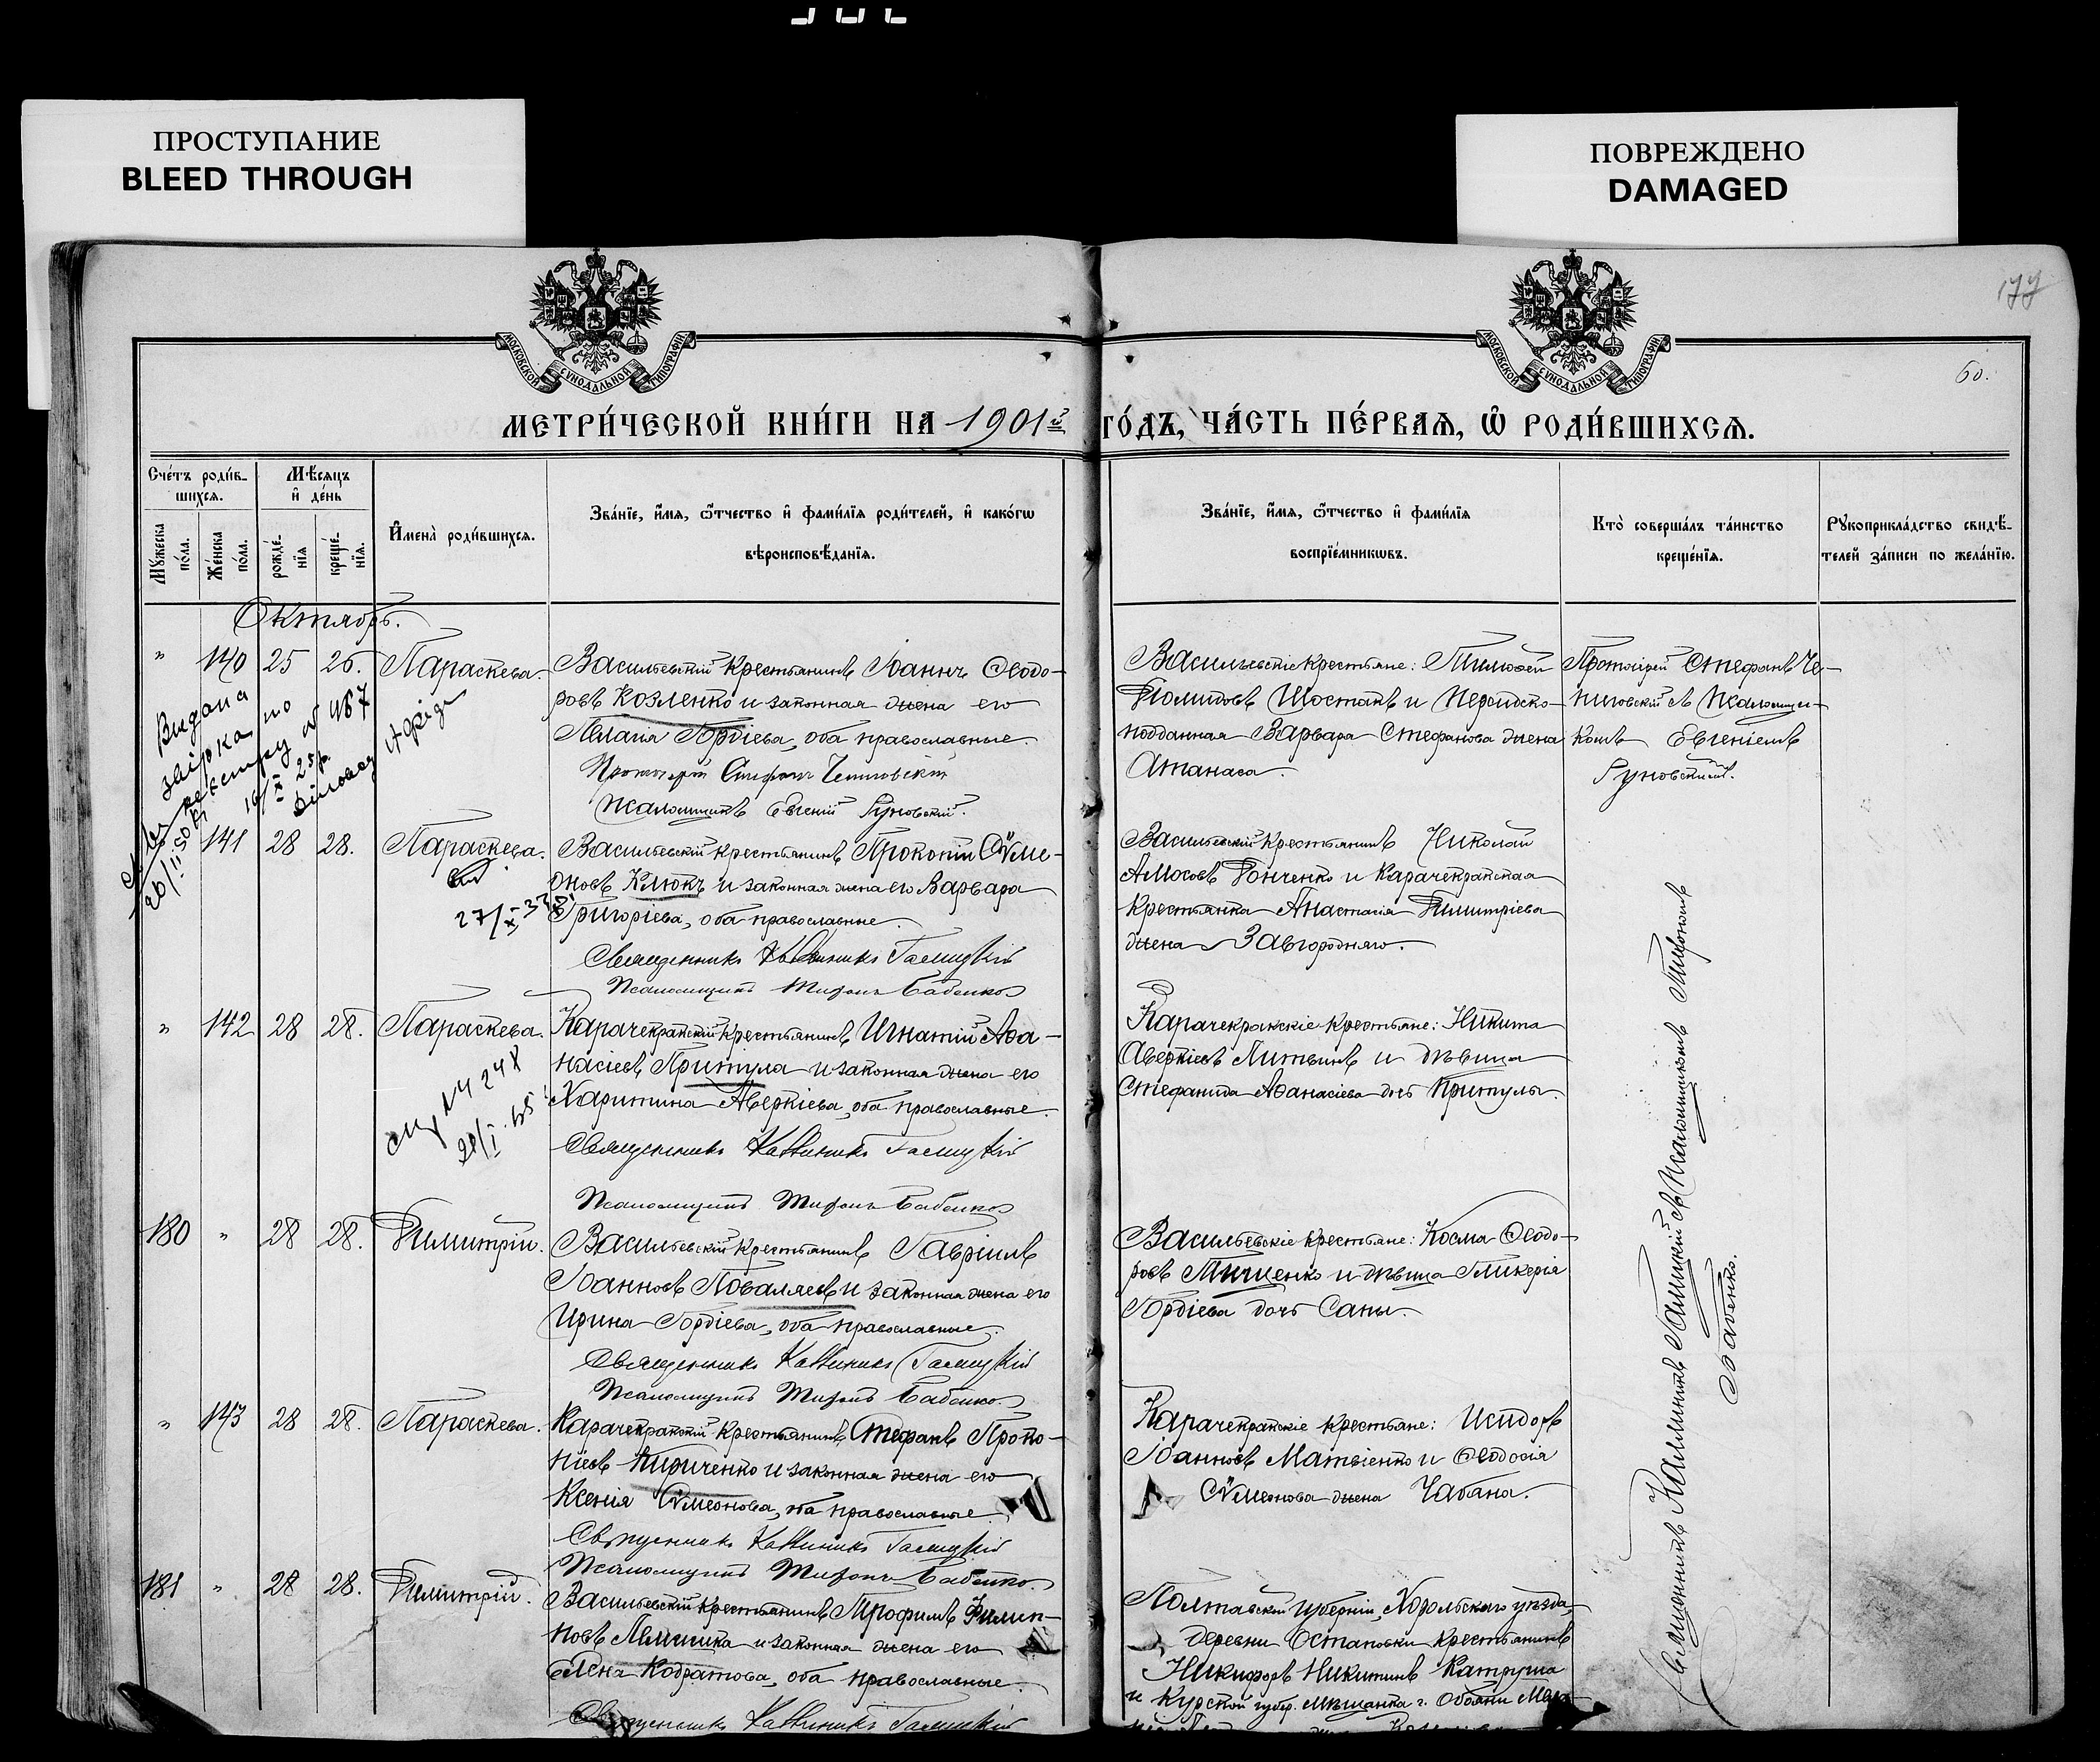 ПРОСТУПАНИЕ
BLEED THROUGH
ПОВРЕЖДЕНО
DAMAGED
177
60.
МОСКОВСКОЙ СѴНОДАЛЬНОЙ ТИПОГРАФІИ
МОСКОВСКОЙ СѴНОДАЛЬНОЙ ТИПОГРАФІИ
МЕТРИ́ЧЕСКОЙ КНИ́ГИ НА 1901й ГО́ДЪ, ЧА́СТЬ ПЕ́РВАѦ, Ѡ҆ РОДИ́ВШИХСѦ.
Сче́тъ роди́в-
шихсѧ.
Мꙋжеска по́ла.
Же́нска по́ла.
Мѣ́сѧцъ
и҆ де́нь
рожде́-
нїѧ
креще́-
нїѧ.
И҆мена̀ роди́вшихсѧ.
Зва́нїе, и҆́мѧ, ѻ҆́тчество и҆ фами́лїѧ роди́телей, и҆ како́гѡ
вѣроисповѣ́данїѧ.
Зва́нїе, и҆́мѧ, ѻ҆́тчество и҆ фами́лїѧ
воспрїе́мникѡвъ.
Кто̀ соверша́лъ та́инство
креще́нїѧ.
Рꙋкоприкла́дство свидѣ́-
телей за́писи по жела́нїю.
Октябрь.
" 140 25 26. Параскева.
Васильевскій крестьянинъ Іоаннъ Ѳеодо-
ровъ Козленко и законная жена его
Пелагія Гордіева, оба православные.
Протоіерей Стефанъ Чепиговскій
Псаломщикъ Евгеній Руновскій.
Васильевскіе крестьяне: Тимоѳей
Шостакъ и Персидско-
подданная Варвара Стефанова жена
Атанаса.
Протоіерей Стефанъ Че-
пиговскій съ Псаломщи-
комъ Евгеніемъ
Руновскимъ.
Видана
по
№ 487
141 28 28. Параскева.
27/X-37
Васильевскій крестьянинъ Прокопій Сѵме-
оновъ Клюкъ и законная жена его Варвара
Григоріева, оба православные.
Священникъ Каллиникъ Галицкій
Псаломщикъ Миронъ Бабенко
Васильевскій крестьянинъ Николай
Амосовъ Гонченко и Карачекракская
крестьянка Анастасія Димитріева
жена Завгородняго.
" 142 28 28. Параскева.
Карачекракскій крестьянинъ Игнатій Аѳа-
насіевъ Притула и законная жена его
Харитина Аверкіева, оба православные.
Священникъ Каллиникъ Галицкій
Псаломщикъ Миронъ Бабенко
Карачекракскіе крестьяне: Никита
Аверкіевъ Литвинъ и дѣвица
Стефанида Аѳанасіева дочь Притулы.
180 " 28 28. Димитрій.
Васильевскій крестьянинъ Гавріилъ
Іоанновъ Поваляевъ и законная жена его
Ирина Гордіева, оба православные.
Священникъ Каллиникъ Галицкій
Псаломщикъ Миронъ Бабенко.
Васильевскіе крестьяне: Косма Ѳеодо-
ровъ Тищенко и дѣвица Гликерія
Гордіева дочь Саны.
" 143 28 28. Параскева.
Карачекракскій крестьянинъ Стефанъ Проко-
піевъ Кириченко и законная жена его
Ксенія Сѵмеонова, оба православные.
Священникъ Каллиникъ Галицкій
Псаломщикъ Миронъ Бабенко.
Карачекракскіе крестьяне: Исидоръ
Іоанновъ Матвіенко и Ѳеодосія
Сѵмеонова жена Чабана.
181 " 28 28. Димитрій.
Васильевскій крестьянинъ Трофимъ Филип-
повъ и законная жена его
Елена Кодратова, оба православные.
Священникъ Каллиникъ Галицкій
Полтавской губерніи, Хорольскаго уѣзда,
деревни Остаповки крестьянинъ
Никифоръ Никитинъ Катруша
и Курской губер. мѣщанка г. Обояни
Священникъ Каллиникъ Галицкій съ Псаломщикомъ Мирономъ
Бабенко.